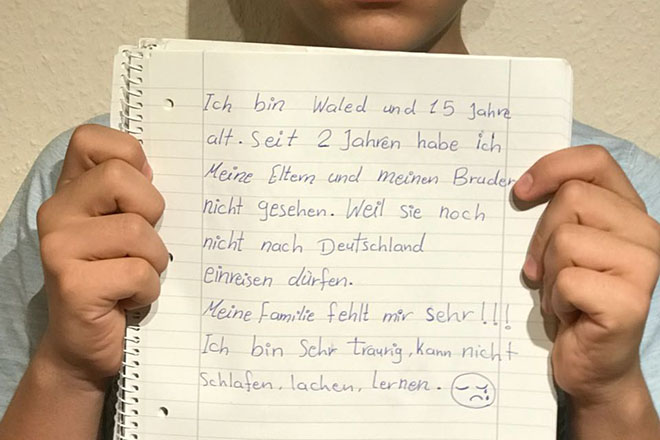 Ich bin Waled und 15 Jahre
alt. Seit 2 Jahren habe ich
Meine Eltern und meinen Bruder
nicht gesehen. Weil sie noch
nicht nach Deutschland
einreisen dürfen.
Meine Familie fehlt mir sehr!!!
Ich bin Sehr traurig, kann nicht
Schlafen, lachen, Lernen.